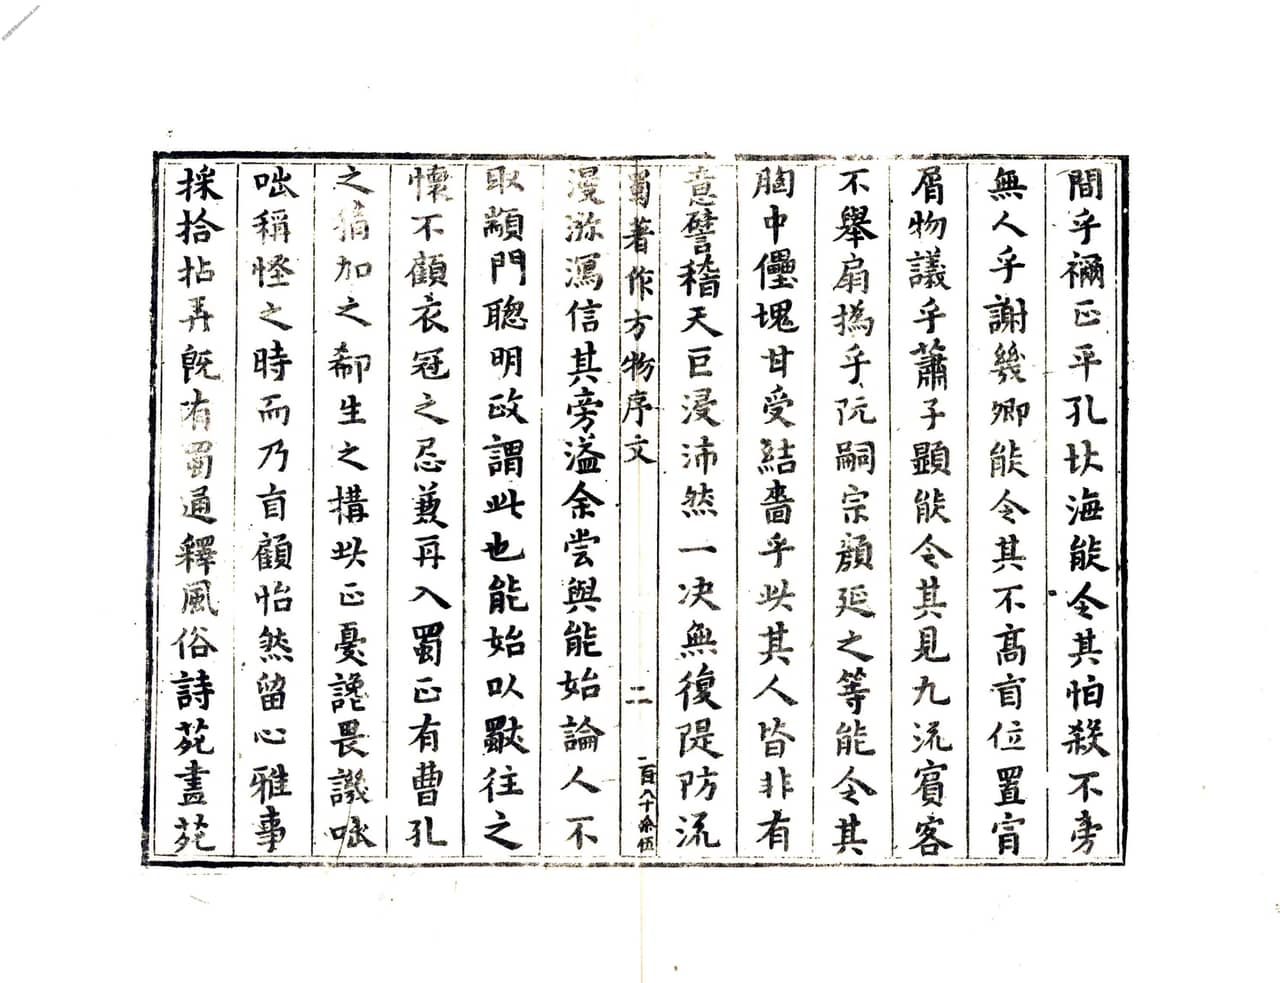 間乎禰正平孔北海能令其怕殺不旁
無人乎謝幾卿能令其不高盲位置窅
屑物議乎蕭子顯能令其見九流賓客
不舉扇撝乎阮嗣宗顏延之等能令其
胸中儡塊甘受結嗇乎此其人皆非有
意譬稽天巨浸沛然一決無復隄防流
蜀著作方物序文
二
一百八十余伍
漫㳽漓信其旁溢余嘗與能始論人不
取顓門聰明政謂此也能始以斁往之
懷不顧衣冠之忌兼再入蜀正有曹孔
之猜加之郗生之構此正憂讒畏譏咄
咄稱怪之時而乃盲顧怡然留心雅事
採拾拈弄旣有蜀通釋風俗詩苑畫苑